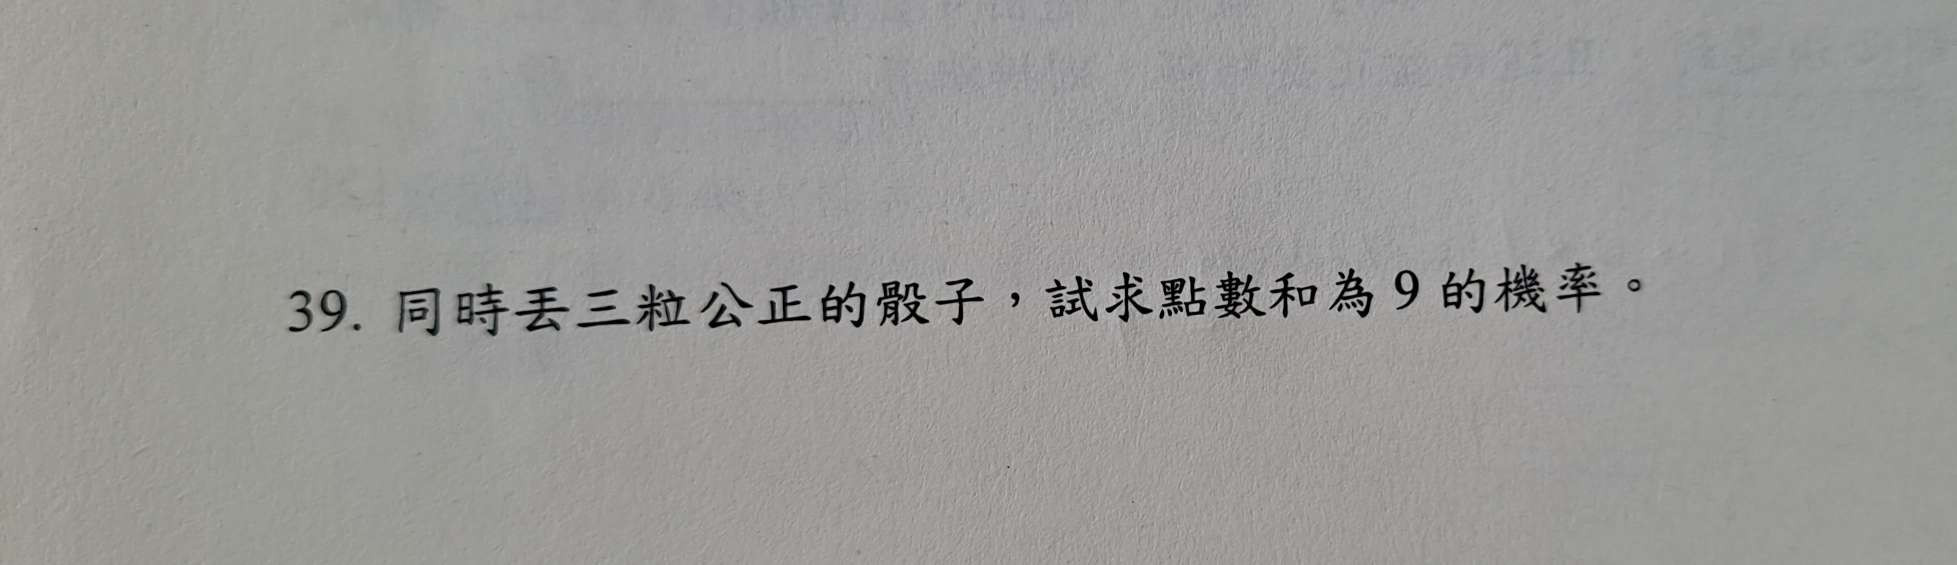 39. 同時丟三粒公正的骰子，試求點數和為 9 的機率。